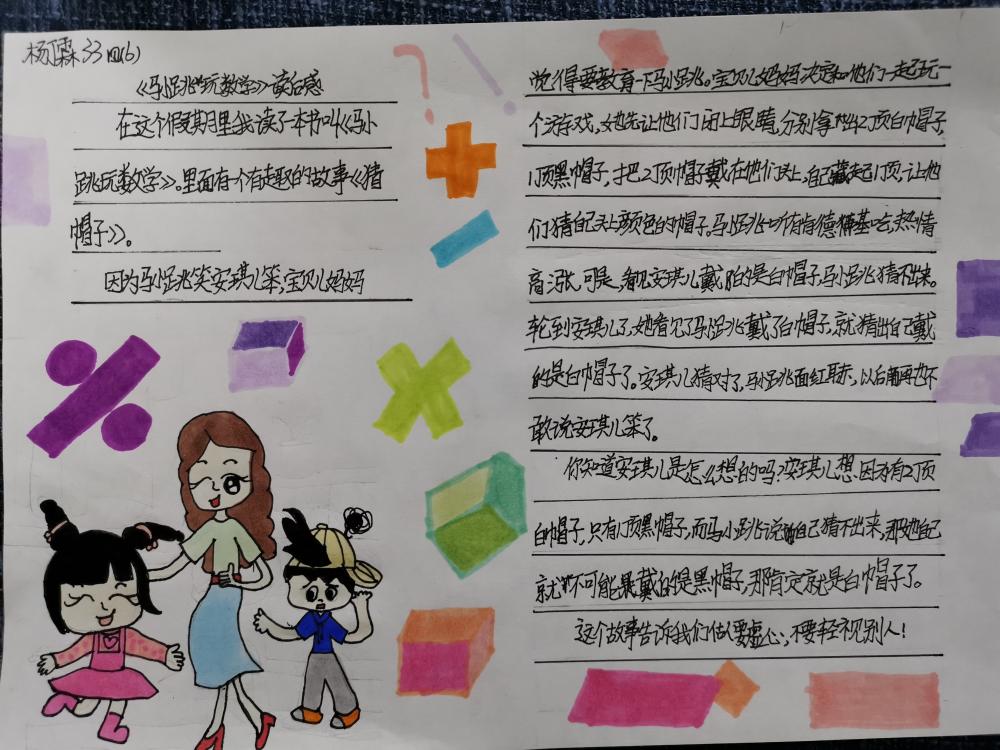 杨霖 33 四(6)
《马小跳玩数学》读后感
在这个假期里我读了一本书叫《马小
跳玩数学》。里面有一个有趣的故事《猜
帽子》。
因为马小跳笑安琪儿笨，宝贝儿妈妈
觉得要教育一下马小跳。宝贝儿妈妈决定和他们一起玩一
个游戏，她先让他们闭上眼睛，分别拿出2顶白帽子，
1顶黑帽子，把2顶帽子戴在他们头上，自己藏起1顶，让他
们猜自己头上颜色的帽子。马小跳听有肯德基吃，热情
高涨，可是，看见安琪儿戴的是白帽子，马小跳猜不出来。
轮到安琪儿了，她看见了马小跳戴了白帽子，就猜出自己戴
的是白帽子了。安琪儿猜对了，马小跳面红耳赤，以后再也不
敢说安琪儿笨了。
你知道安琪儿是怎么想的吗？安琪儿想，因为有2顶
白帽子，只有1顶黑帽子，而马小跳说自己猜不出来，那她自己
就不可能戴的是黑帽子，那肯定就是白帽子了。
这个故事告诉我们做人要虚心，不要轻视别人！